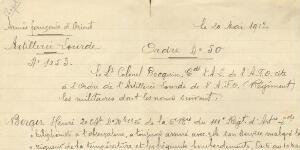 Armée française d'Orient
le 20 Mai 191
Artillerie Lourde
Ordre N° 50
N° 1253
Le Lt Colonel Bocquin, Cdt l'A.L de l'A.F.O. cite
à l'Ordre de l'Artillerie Lourde de l'A.F.O. (Régiment)
les militaires dont les noms suivent:
Berger Henri 2e de la du 111e Régt d'Art
téléphoniste à l'observatoire, a toujours assuré avec zèle son service malgré la
rigueur de la température et les fréquents bombardements.